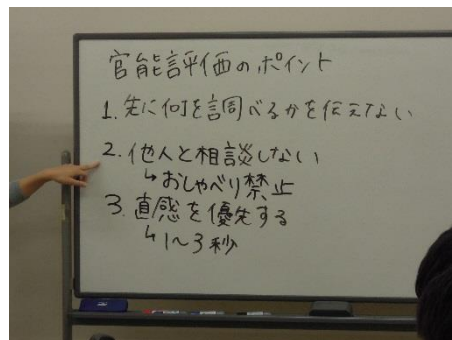 官能評価のポイント
1. 先に何を調べるかを伝えない
2. 他人と相談しない
↳おしゃべり禁止
3. 直感を優先する
↳1～3秒